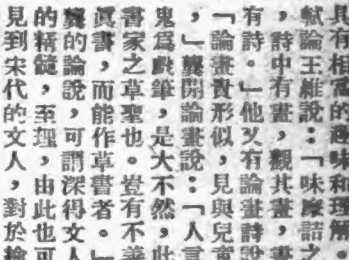 具有相當的趣味和理解。
軾論王維說：「味摩詰之
，詩中有畫，觀其畫，畫
有詩。」他又有論畫詩說
「論畫貴形似，見與兒童
，」龔開論畫說：「人言
鬼爲戲筆，是大不然，此
書家之草聖也。豈有不善
眞書，而能作草書者。」
龔的論說，可謂深得文人
的精髓，至理，由此也可
見到宋代的文人，對於繪